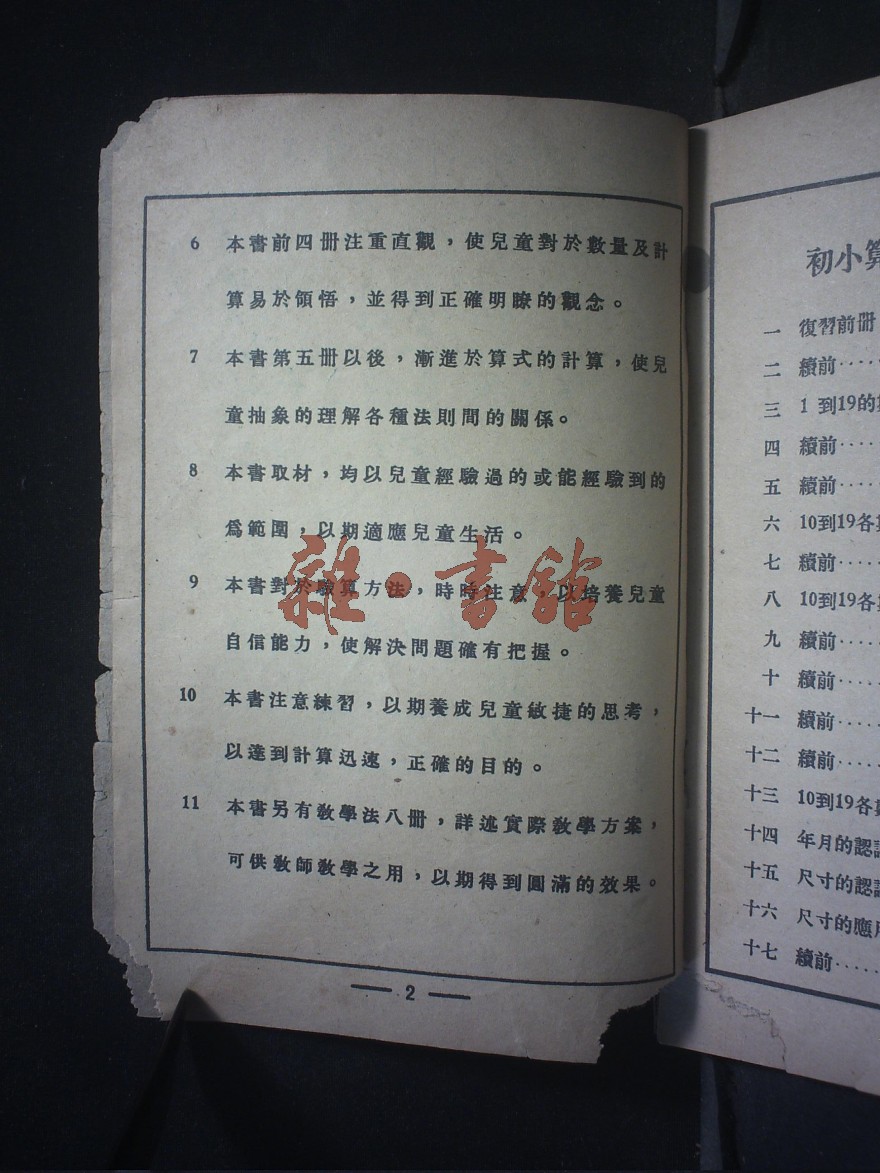 6 本書前四册注重直觀，使兒童對於數量及計
算易於領悟，並得到正確明瞭的觀念。
7 本書第五册以後，漸進於算式的計算，使兒
童抽象的理解各種法則間的關係。
8 本書取材，均以兒童經驗過的或能經驗到的
爲範圍，以期適應兒童生活。
9 本書對於驗算方法，時時注意，以培養兒童
自信能力，使解決問題確有把握。
10 本書注意練習，以期養成兒童敏捷的思考，
以達到計算迅速，正確的目的。
11 本書另有教學法八册，詳述實際教學方案，
可供教師教學之用，以期得到圓滿的效果。
2
雜·書館
初小算
一 復習前册
二 續前‥‥
三 1 到19的
四 續前‥‥
五 續前‥‥
六 10到19各
七 續前‥‥
八 10到19各
九 續前‥‥
十 續前‥‥
十一 續前‥‥
十二 續前‥‥
十三 10到19各
十四 年月的認
十五 尺寸的認
十六 尺寸的應
十七 續前‥‥